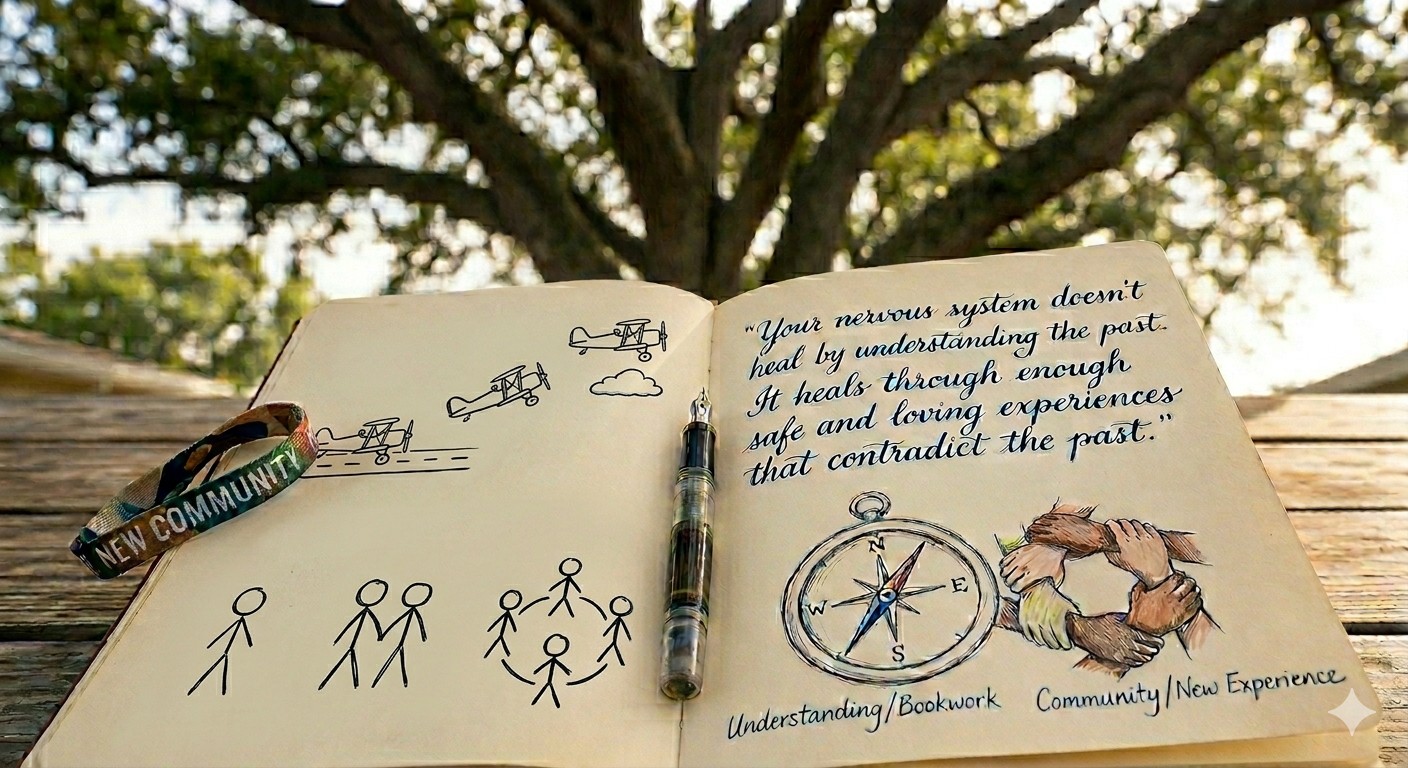 NEW COMMUNITY
"Your nervous system doesn't
heal by understanding the past.
It heals through enough
safe and loving experiences
that contradict the past."
N
E
W
S
Understanding/Bookwork
Community/New Experience